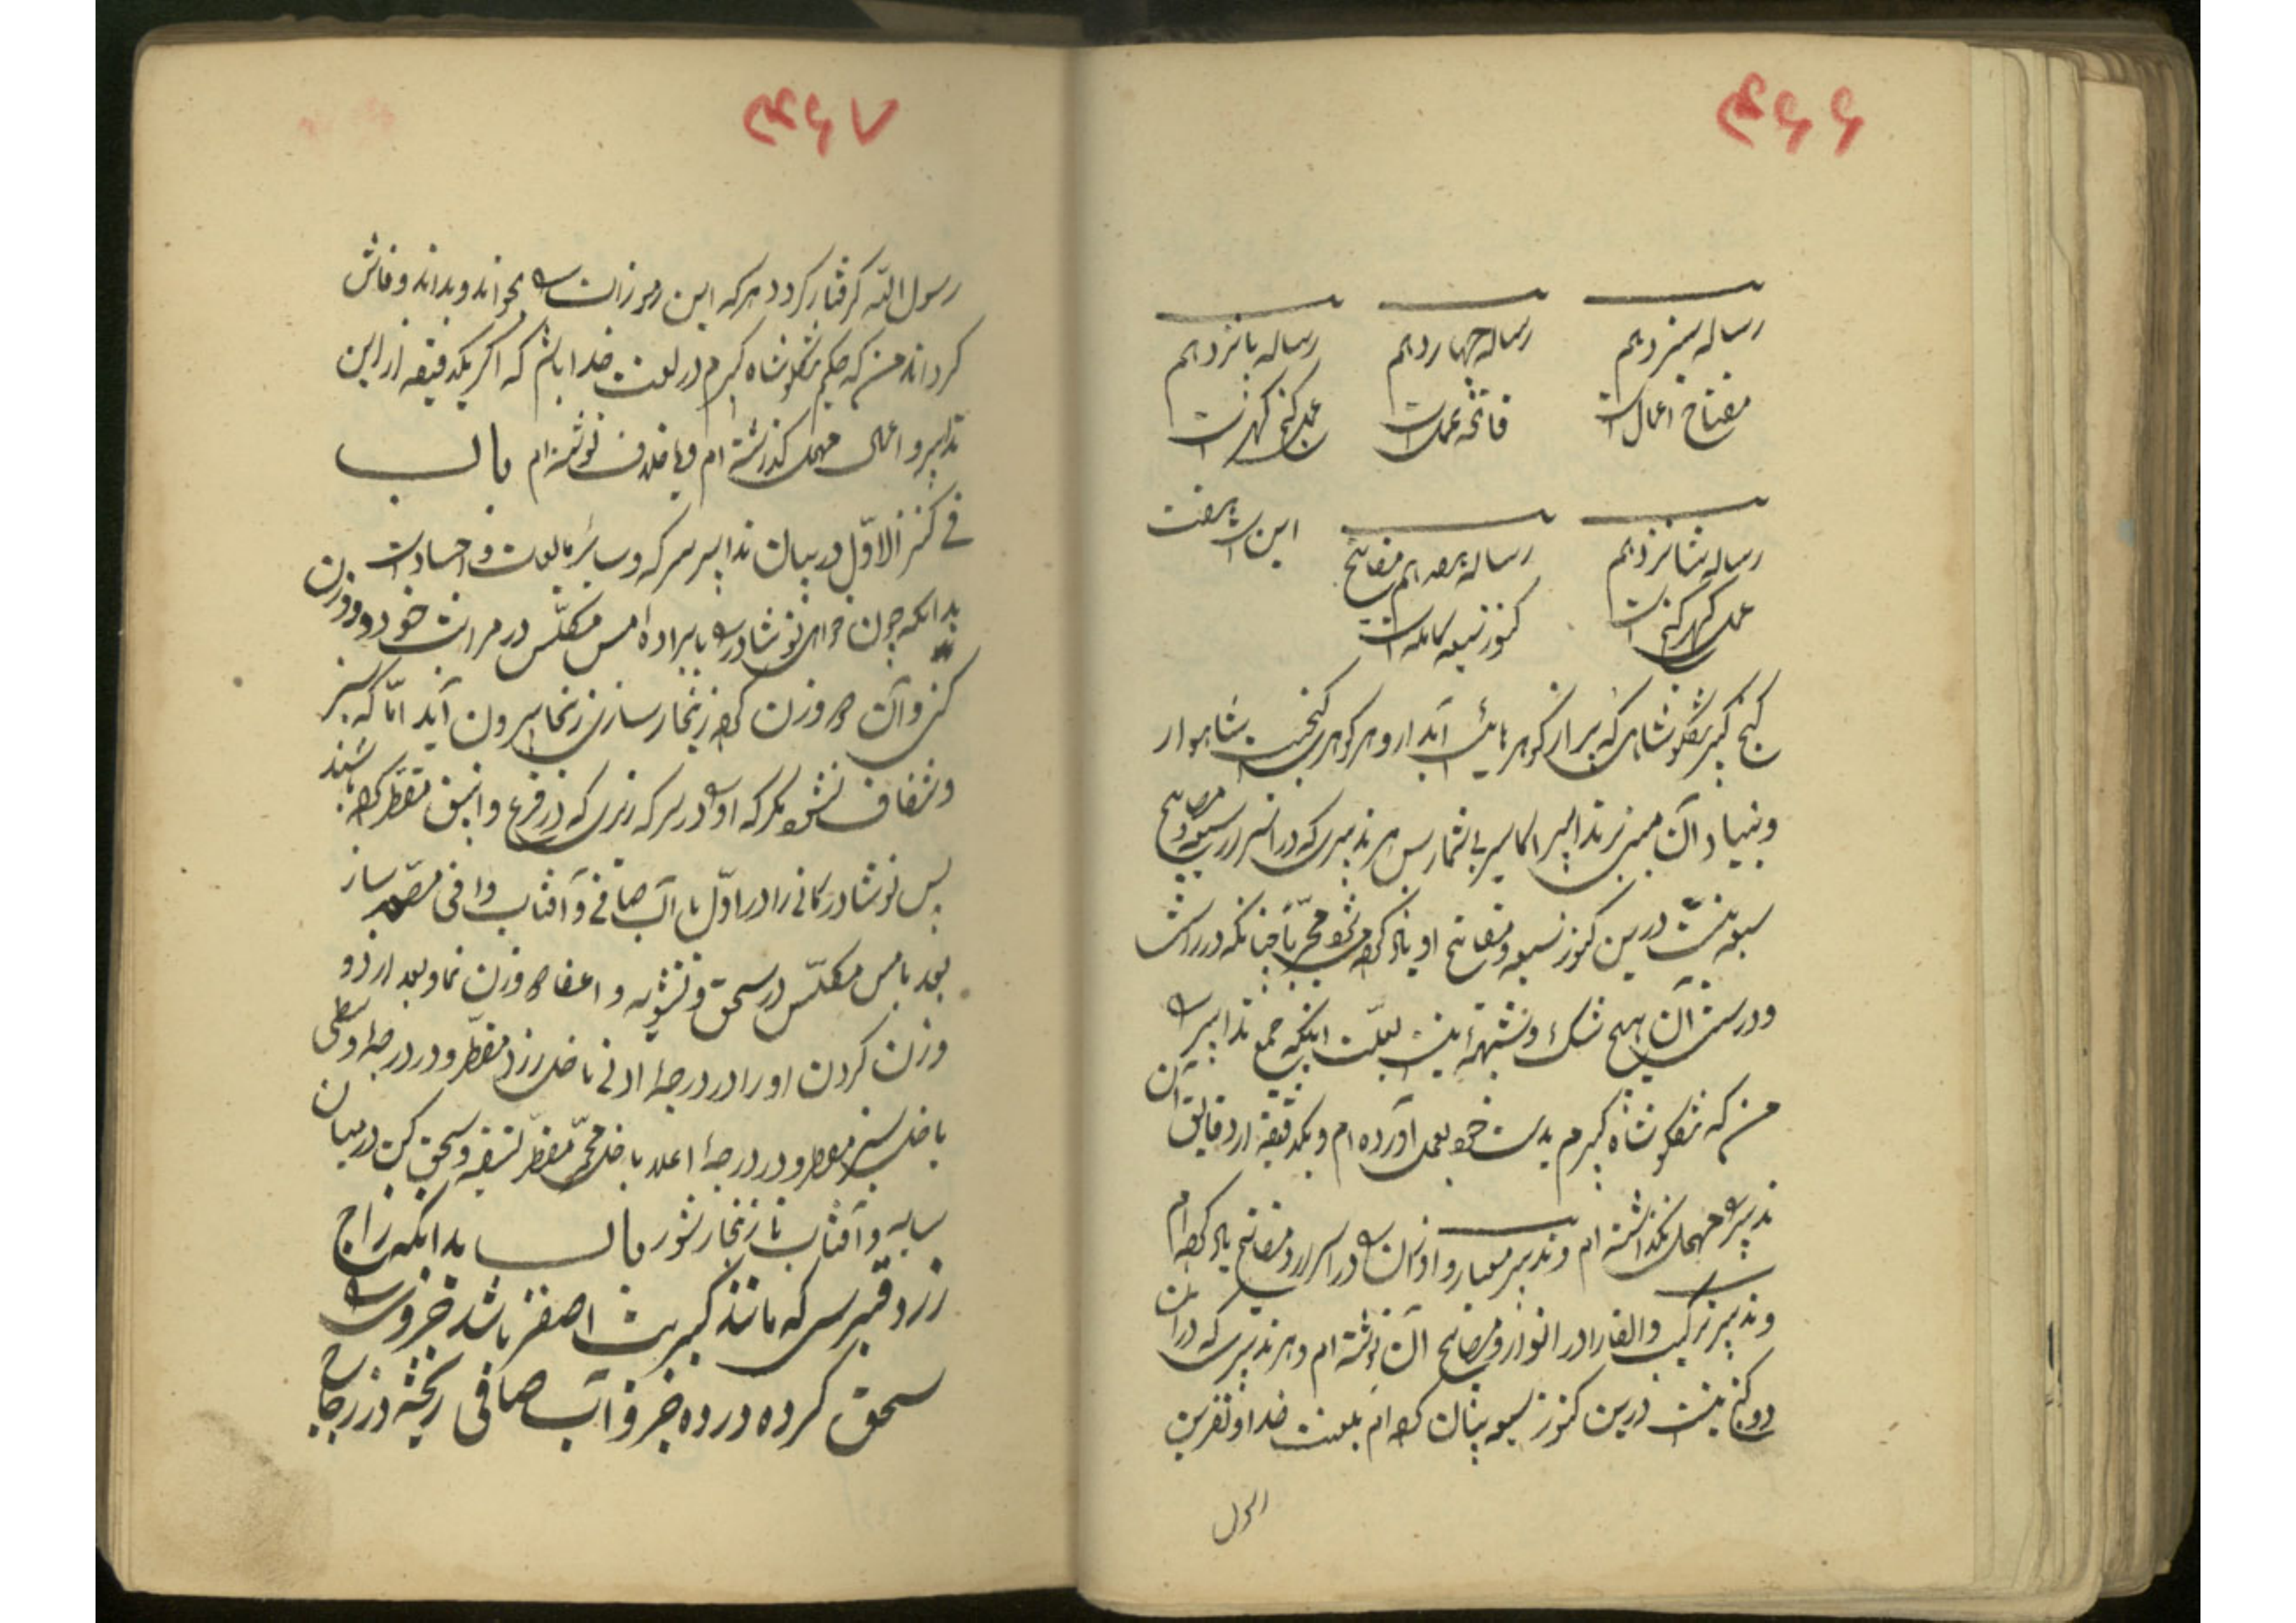 ۴۶۶
رساله سیزدهم
رساله چهاردهم
رساله پانزدهم
مفتاح اعمال است
فاتحه عمل است
رساله شانزدهم
رساله هفدهم مفاتیح
این است هفت
کنوز سبعه کامله است
گنج کبیر شکوشاهی که پر از گوهرهای آبدار و هر گوهری گنجیست شاهوار
و بنیاد آن تدابیر اکاسیر بی شمار پس هر تدبیری که در اسرار سبعه و مصابیح
سبعه نیست درین کنوز سبعه و مفاتیح او یاد کرده چنانکه در راستی
و درستی آن هیچ شک و شبهه نیست بعلت اینکه جمیع تدابیر را
من که شکوشاه کبیرم بدست خود بعمل آورده ام و یکدقیقه از دقایق آن
تدبیر را مهمل نگذاشته ام و تدبیر معیار و اوزان را در اسرار و مفاتیح یاد کرده ام
و تدبیر ترکیب و القا را در انوار و مصابیح آن نوشته ام و هر تدبیری که در آن
دو گنج نیست درین کنوز سبعه بیان کرده ام بلعنت خدا و نفرین
رسول
۴۶۷
رسول الله گرفتار گردد هر که این رموزات را بخواند و بداند و فاش
گرداند من که حکیم شکوشاه کبیرم در لعنت خدا باشم که اگر یکدقیقه از این
تدابیر و اعمال مهمل گذرشته ام و یا خلاف نوشته ام باب
فی کنز الاول در بیان تدابیر سرکه و سایر مایعات و اجساد است
بدانکه چون خواهی نوشادر را با براده مس مکلس در مراتب خود دو وزن
کنی و آن ده وزن کرده زنجار سازی زنجار بیرون آید اما که سبز
و شفاف نشود مگر که او را در سرکه رزی که در قرع و انبیق مقطر کرده باشند
پس نوشادر کانی را در اول با آب صافی و آفتاب وافی مصعد ساز
بعد با مس مکلس در سحق و تشویه و اعفا ده وزن نما و بعد از دو
وزن کردن او را در درجه ادنی با خل رزد مقطر و در درجه وسطی
با خل سبز مقطر و در درجه اعلا با خل محمر مقطر تسقیه و سحق کن در میان
سایه و آفتاب تا زنجار شود باب بدانکه زاج
زرد قبرسی که مانند کبریت اصفر باشد جزوی را
سحق کرده در ده جزو آب صافی ریخته در زجاج